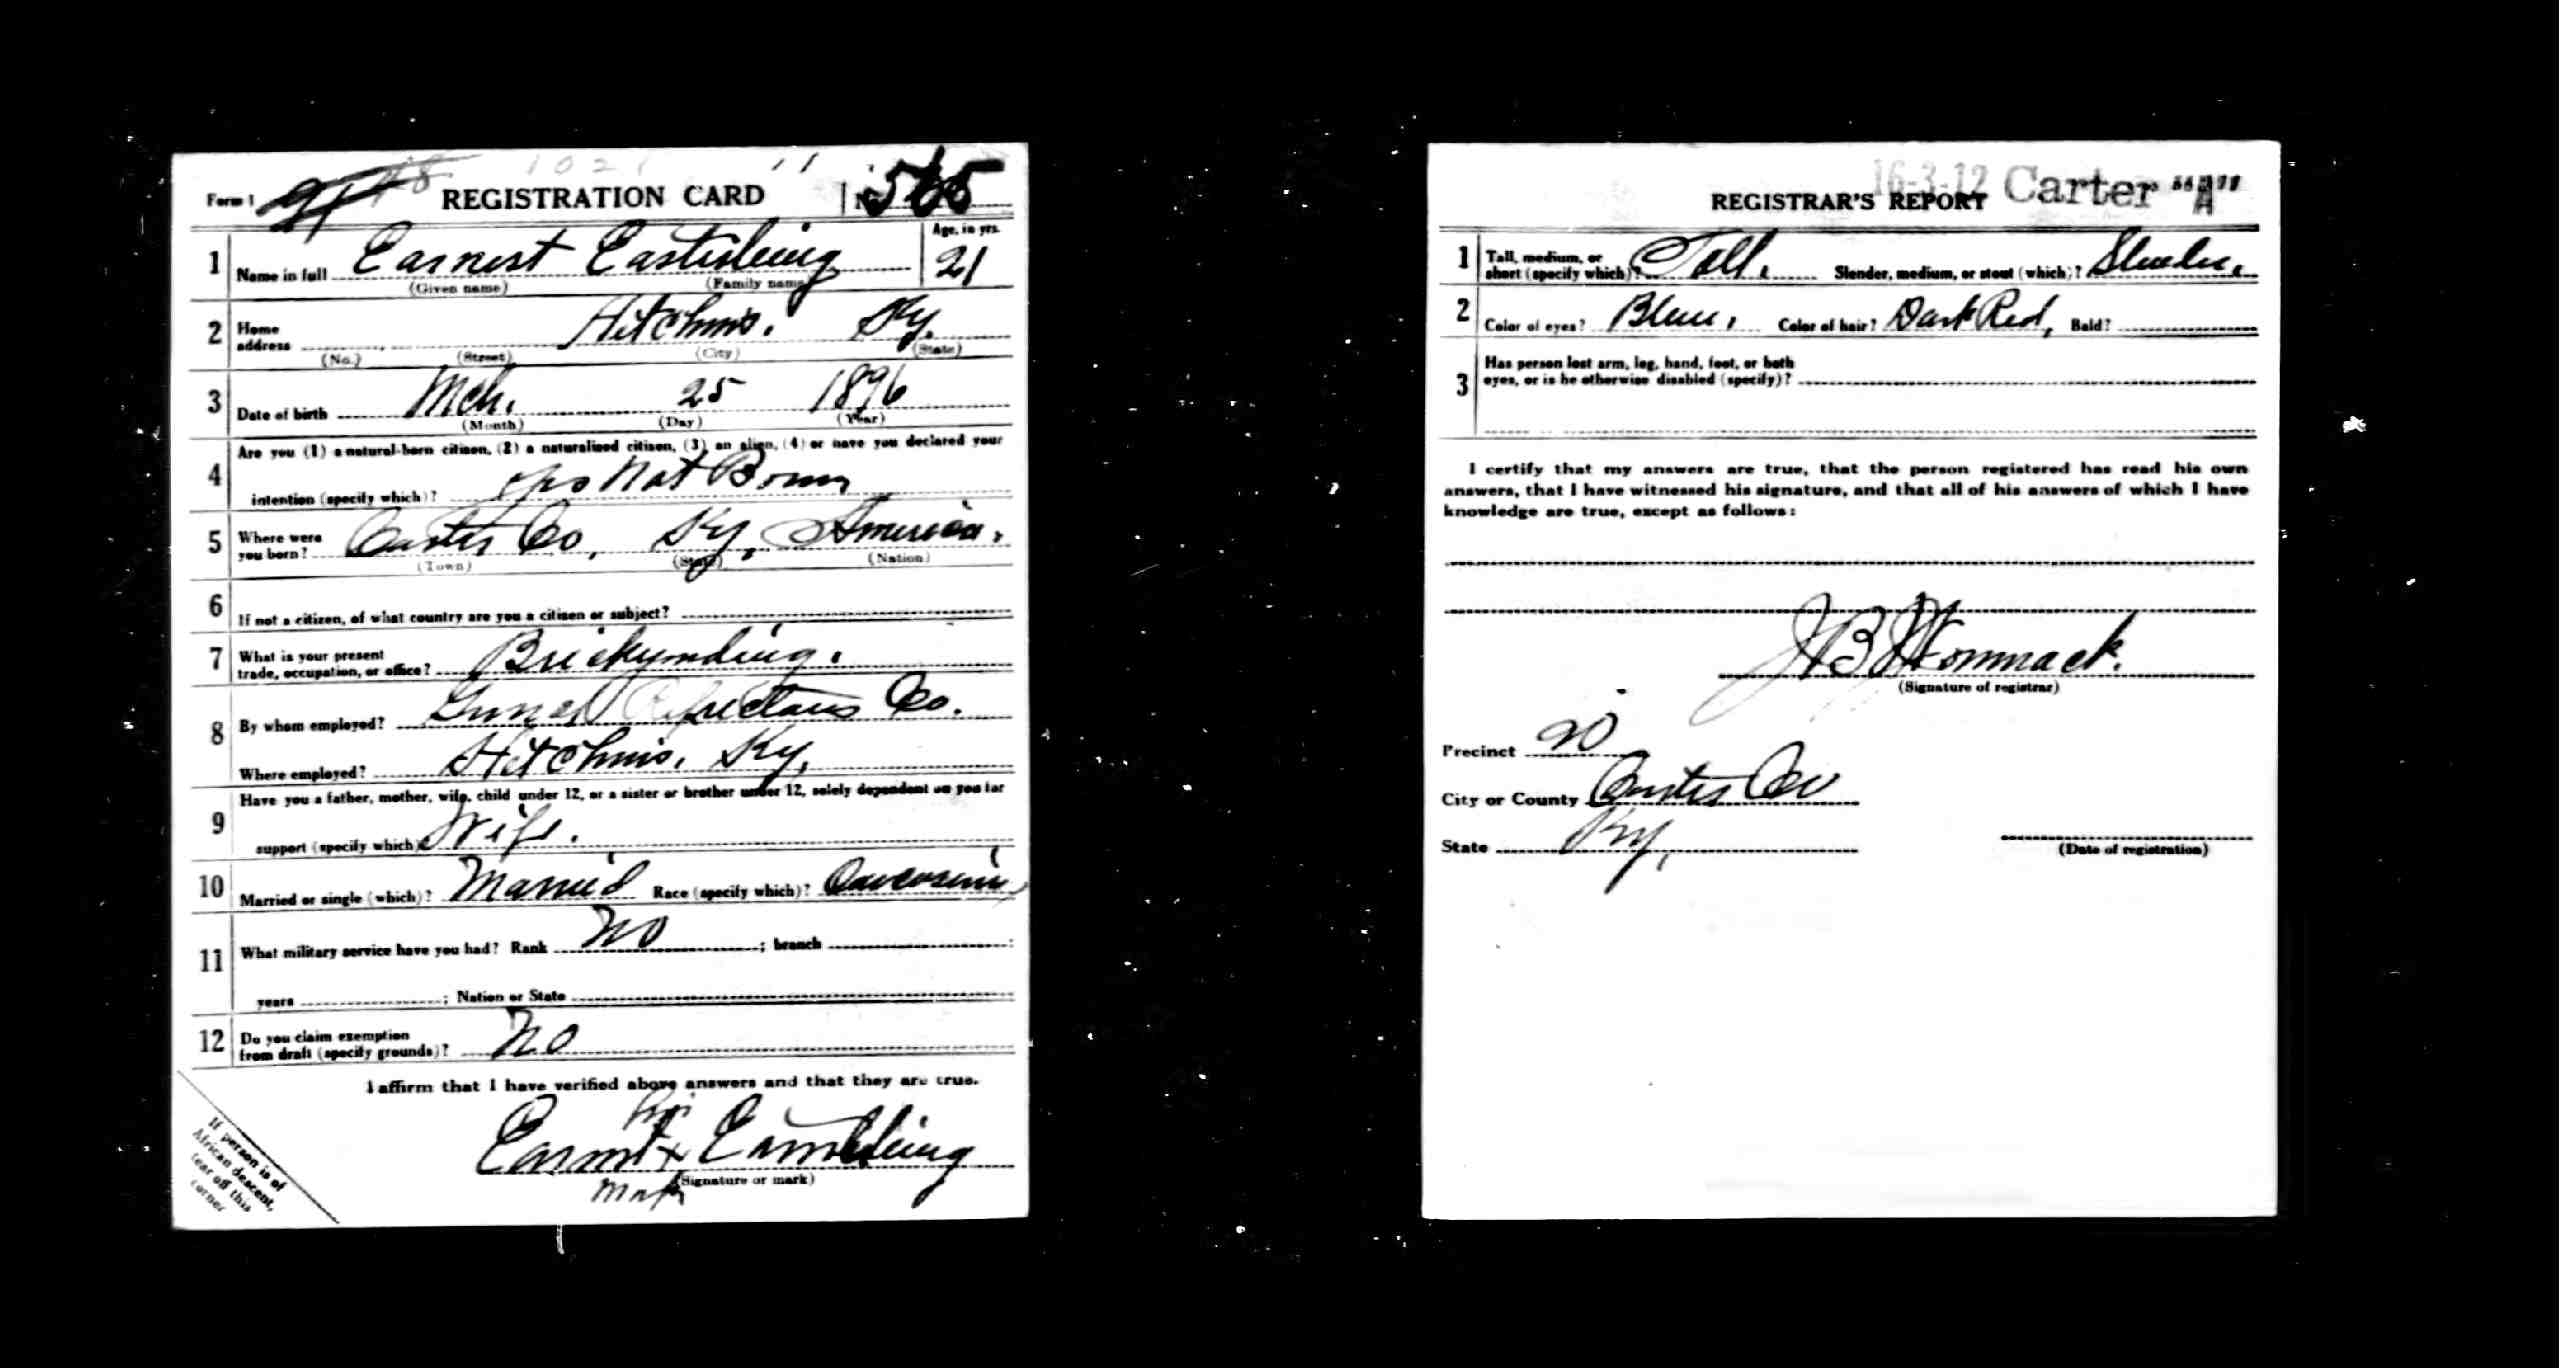 Form 1 REGISTRATION CARD No. 565
1 Name in full Earnest Easterling Age, in yrs. 21
(Given name) (Family name)
2 Home address Hitchins. Ky.
(No.) (Street) (City) (State)
3 Date of birth Mch. 25 1896
(Month) (Day) (Year)
4 Are you (1) a natural-born citizen, (2) a naturalized citizen, (3) an alien, (4) or have you declared your
intention (specify which)? Yes Nat Born
5 Where were you born? Carter Co, Ky, America.
(Town) (State) (Nation)
6 If not a citizen, of what country are you a citizen or subject?
7 What is your present trade, occupation, or office?
8 By whom employed? Co.
Where employed? Hitchins, Ky,
9 Have you a father, mother, wife, child under 12, or a sister or brother under 12, solely dependent on you for
support (specify which) Wife.
10 Married or single (which)? Married Race (specify which)? Caucasian
11 What military service have you had? Rank No ; branch
years ; Nation or State
12 Do you claim exemption from draft (specify grounds)? No
I affirm that I have verified above answers and that they are true.
his
Earnest x Easterling
(Signature or mark)
mark
If person is of
African descent,
tear off this
corner
16-3-12 Carter "A"
REGISTRAR'S REPORT
1 Tall, medium, or short (specify which)? Tall. Slender, medium, or stout (which)? Slender.
2 Color of eyes? Blue, Color of hair? Dark Red, Bald?
3 Has person lost arm, leg, hand, foot, or both
eyes, or is he otherwise disabled (specify)?
I certify that my answers are true, that the person registered has read his own
answers, that I have witnessed his signature, and that all of his answers of which I have
knowledge are true, except as follows:
J B Womack.
(Signature of registrar)
Precinct 20
City or County Carter Co
State Ky,
(Date of registration)